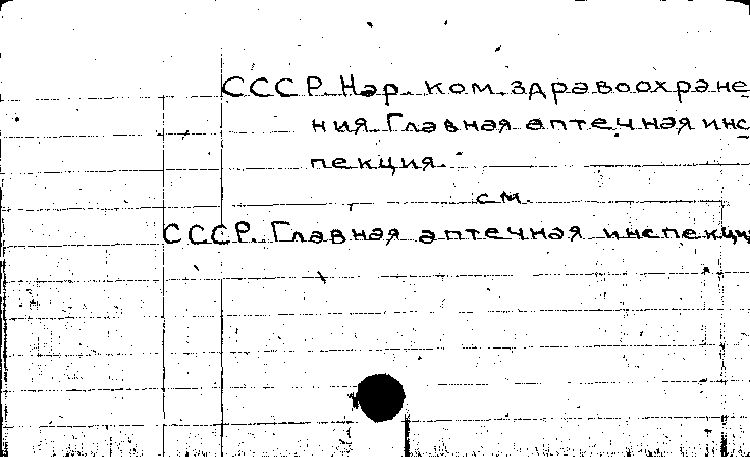 СССР. Нар. ком. здравоохране
ния. Главная аптечная инс
пекция.
см.
СССР. Главная аптечная инспекция